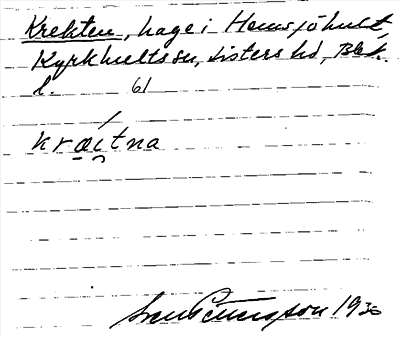 Krekten, hage i Hemsjöhult,
Kyrkhults sn, Listers hd, Blek.
l. 61
kræítna
Sven Petersson 1930